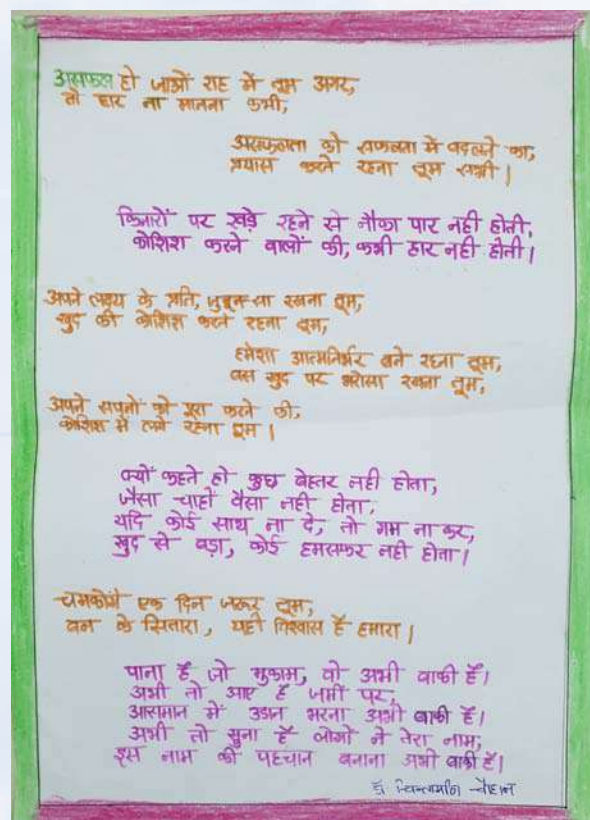 असफल हो जाओं राह में तुम अगर,
तो हार ना मानना कभी,
असफलता को सफलता में बदलने का,
प्रयास करते रहना तुम सभी।
किनारों पर खड़े रहने से नौका पार नही होती,
कोशिश करने वालों की, कभी हार नही होती।
अपने लक्ष्य के प्रति, जुनून सा रखना तुम,
खुद की कोशिश करते रहना तुम,
हमेशा आत्मनिर्भर बने रहना तुम,
बस खुद पर भरोसा रखना तुम,
अपने सपनों को पूरा करने की,
कोशिश में लगे रहना तुम।
क्यों कहते हो कुछ बेहतर नही होता,
जैसा चाहों वैसा नही होता,
यदि कोई साथ ना दे, तो गम ना कर,
खुद से बड़ा, कोई हमसफर नही होता।
चमकोगे एक दिन जरूर तुम,
बन के सितारा, यही विश्वास है हमारा।
पाना है जो मुकाम, वो अभी बाकी है।
अभी तो आए है जमीं पर,
आसमान में उडान भरना अभी बाकी है।
अभी तो सुना है लोगो ने तेरा नाम,
इस नाम की पहचान बनाना अभी बाकी है।
डॉ चिन्तामणि चौहान